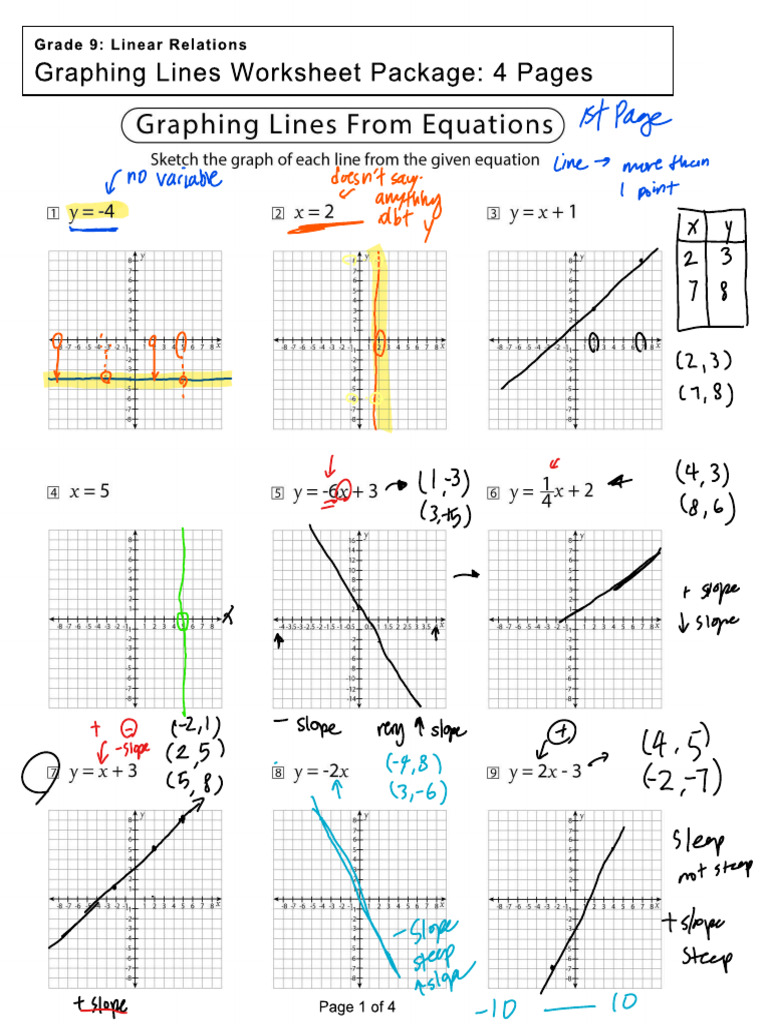 Grade 9: Linear Relations
Graphing Lines Worksheet Package: 4 Pages
Graphing Lines From Equations
1st Page
Sketch the graph of each line from the given equation
Line → more than
1 point
no variable
doesn't say
anything
abt y
1 y = -4
2 x = 2
3 y = x + 1
x y
2 3
7 8
(2,3)
(7,8)
4 x = 5
5 y = -6x + 3
(1,-3)
(3,-15)
6 y = 1/4x + 2
(4,3)
(8,6)
x
+ slope
↓ slope
- slope
very ↑ slope
+ -
-slope
7 y = x + 3
(-2,1)
(2,5)
(5,8)
8 y = -2x
(-4,8)
(3,-6)
+
9 y = 2x - 3
(4,5)
(-2,-7)
steep
not steep
+ slope
steep
- slope
steep
↑ slope
+ slope
Page 1 of 4
-10 — 10